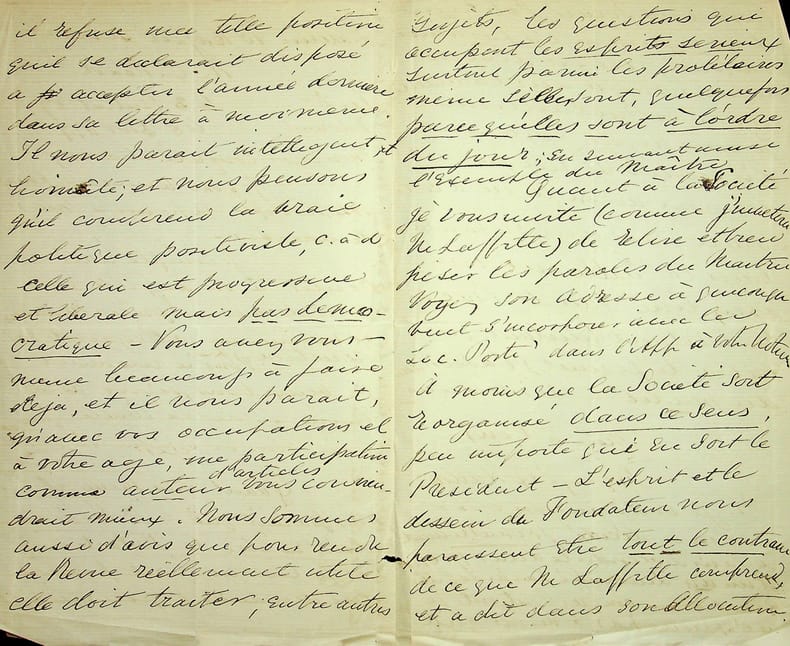 il refuse une telle position
qu'il se declarait disposé
a accepter l'année derniere
dans sa lettre à moi meme.
Il nous parait intelligent, et
honnête; et nous pensons
qu'il comprend la vraie
politique positiviste, c. à d
celle qui est progressive
et liberale mais pas demo-
cratique - Vous avez vous-
meme beaucoup à faire
deja, et il nous parait,
qu'avec vos occupations et
à votre age, une participation
comme auteur d'articles vous convien-
drait mieux. Nous sommes
aussi d'avis que pour rendre
la Revue réellement utile
elle doit traiter, entre autres
sujets, les questions qui
occupent les esprits serieux
surtout parmi les prolétaires
meme si elles sont, quelquefois
parcequ'elles sont à l'ordre
du jour; en suivant ainsi
l'Exemple du Maître
Quant à la Société
je vous invite (comme
M. Laffitte) de relire et bien
peser les paroles du Maitre
Voyez son Adresse à quiconque
veut s'incorporer avec la
Soc. Posté dans l'App à votre
à moins que la Société soit
reorganisé dans ce sens,
peu importe qui en soit le
President - L'esprit et le
dessein du Fondateur nous
paraissent etre tout le contraire
de ce que M Laffitte comprend,
et a dit dans son Allocution.